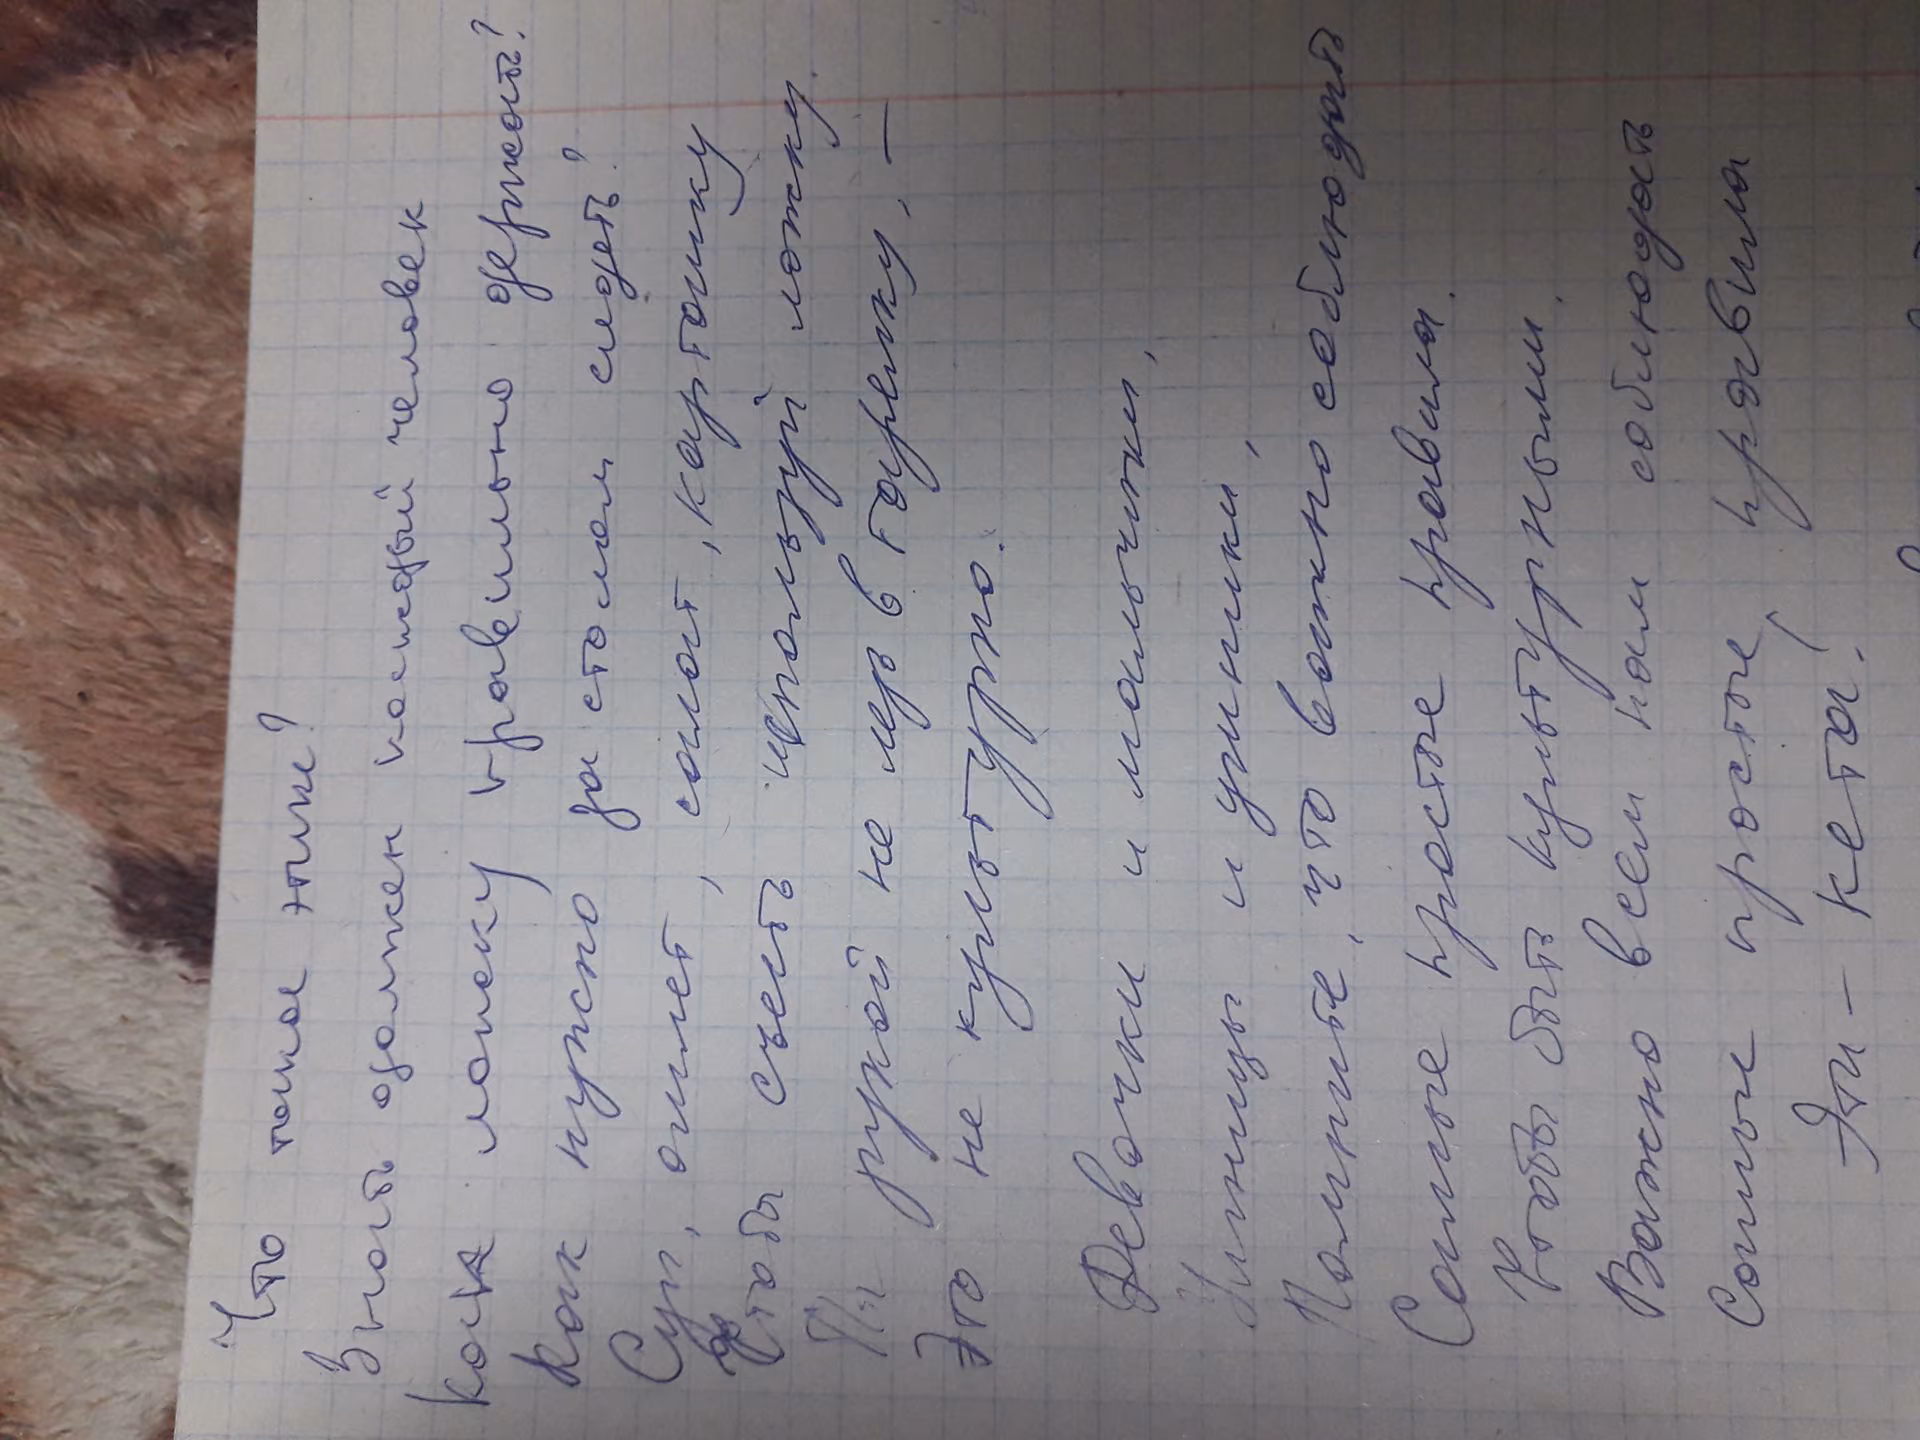 Что такое этик?
Знать должен каждый человек
Как ложку правильно держать?
Как нужно за столом сидеть?
Суп, омлет, салат, картошку
Чтобы съесть используй ложку.
рукой не лез в тарелку, —
Это не культурно.
Девочки и мальчики,
и умники,
Помните, что важно соблюдать
Самые простые правила.
Чтобы быть культурными.
Важно всем нам соблюдать
Самые простые правила
Эти - кета!